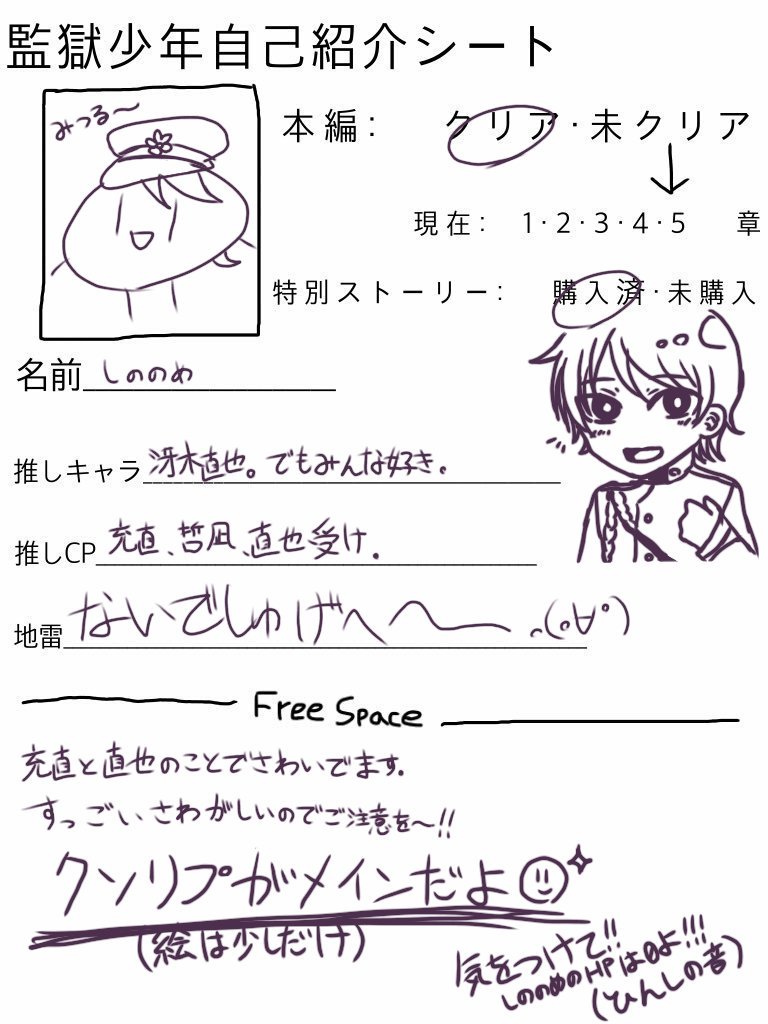 監獄少年自己紹介シート
みつる〜
本編： クリア・未クリア
現在： 1・2・3・4・5 章
特別ストーリー： 購入済・未購入
名前 しののめ
推しキャラ 冴木直也。でもみんな好き。
推しCP 充直、哲凪、直也受け。
地雷 ないでしゅげへへ〜
Free Space
充直と直也のことでさわいでます。
すっごいさわがしいのでご注意を〜!!
クソリプがメインだよ
(絵は少しだけ)
気をつけて!!
しののめのHPは0よ!!!
(ひんしの音)